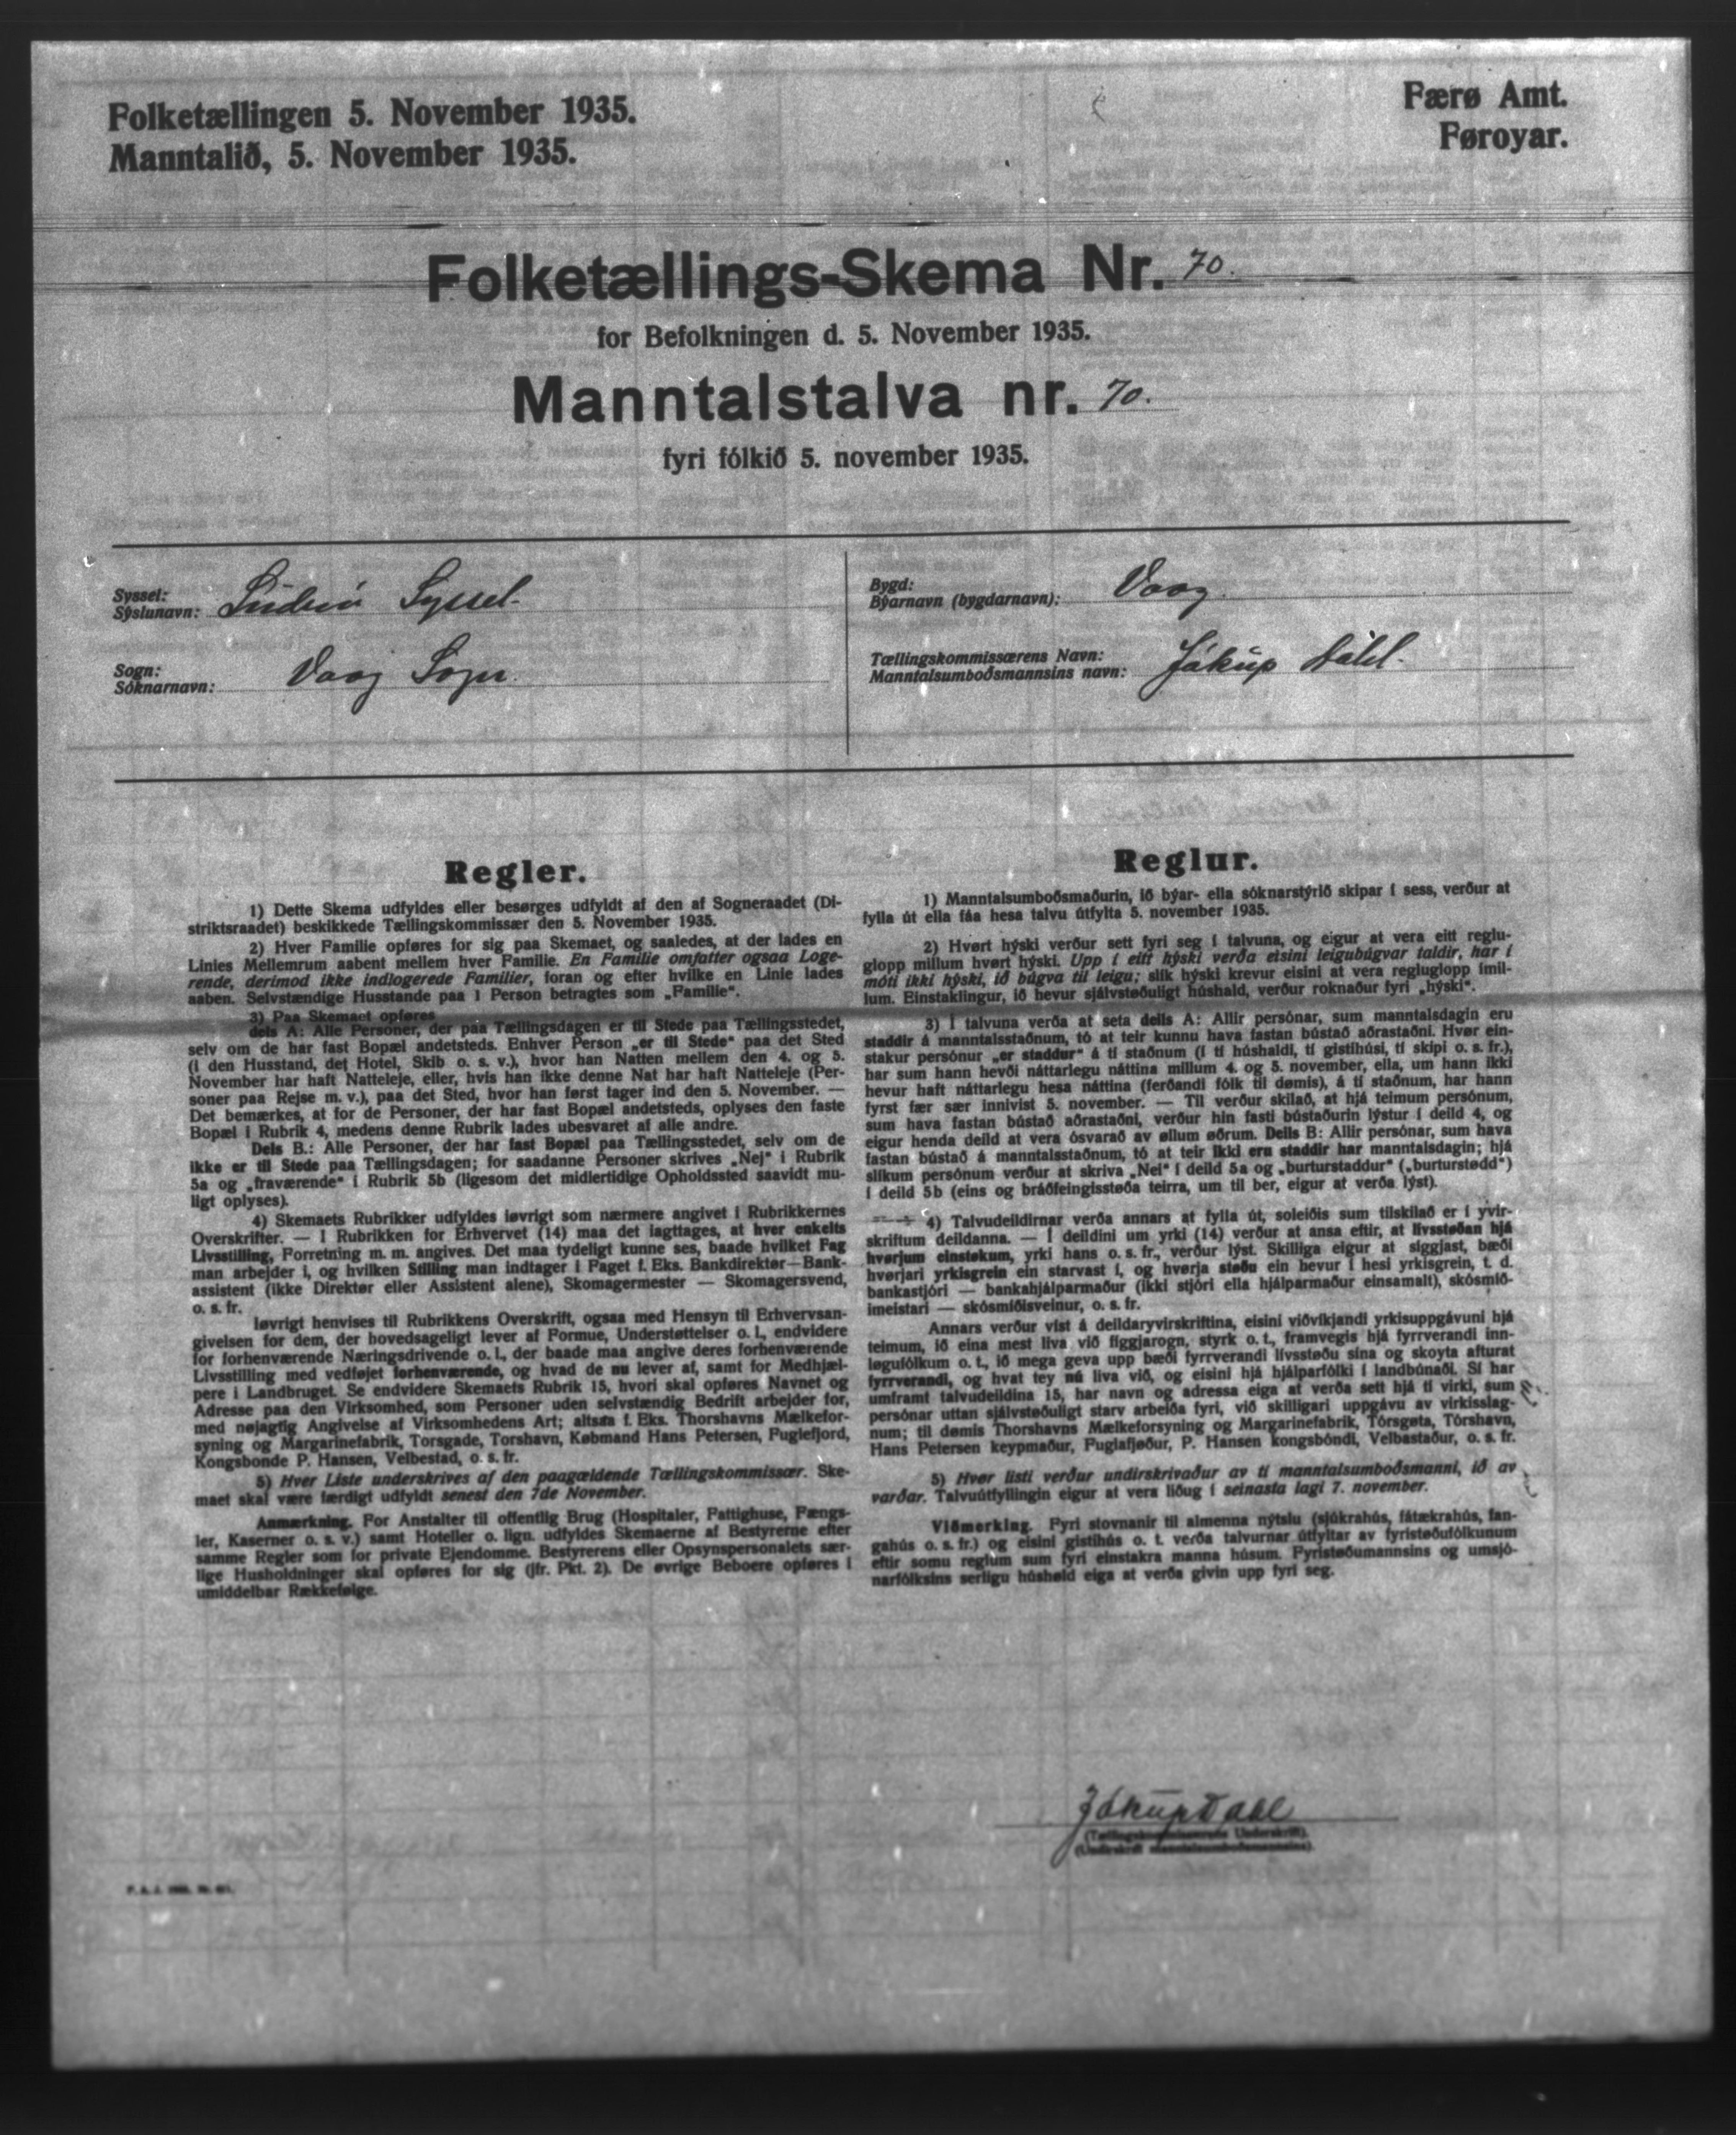 Folketællingen 5. November 1935.
Manntalið, 5. November 1935.
Færø Amt.
Føroyar.
Folketællings-Skema Nr. 70.
for Befolkningen d. 5. November 1935.
Manntalstalva nr. 70.
fyri fólkið 5. november 1935.
Syssel:
Sýslunavn: Suderø Syssel.
Sogn:
Sóknarnavn: Vaag Sogn.
Bygd:
Býarnavn (bygdarnavn): Vaag.
Tællingskommissærens Navn:
Manntalsumboðsmannsins navn: Jákup Dahl.
Regler.
1) Dette Skema udfyldes eller besørges udfyldt af den af Sogneraadet (Di-
striktsraadet) beskikkede Tællingskommissær den 5. November 1935.
2) Hver Familie opføres for sig paa Skemaet, og saaledes, at der lades en
Linies Mellemrum aabent mellem hver Familie. En Familie omfatter ogsaa Loge-
rende, derimod ikke indlogerede Familier, foran og efter hvilke en Linie lades
aaben. Selvstændige Husstande paa 1 Person betragtes som „Familie“.
3) Paa Skemaet opføres
dels A: Alle Personer, der paa Tællingsdagen er til Stede paa Tællingsstedet,
selv om de har fast Bopæl andetsteds. Enhver Person „er til Stede“ paa det Sted
(i den Husstand, det Hotel, Skib o. s. v.), hvor han Natten mellem den 4. og 5.
November har haft Natteleje, eller, hvis han ikke denne Nat har haft Natteleje (Per-
soner paa Rejse m. v.), paa det Sted, hvor han først tager ind den 5. November. —
Det bemærkes, at for de Personer, der har fast Bopæl andetsteds, oplyses den faste
Bopæl i Rubrik 4, medens denne Rubrik lades ubesvaret af alle andre.
Dels B.: Alle Personer, der har fast Bopæl paa Tællingsstedet, selv om de
ikke er til Stede paa Tællingsdagen; for saadanne Personer skrives „Nej“ i Rubrik
5a og „fraværende“ i Rubrik 5b (ligesom det midlertidige Opholdssted saavidt mu-
ligt oplyses).
4) Skemaets Rubrikker udfyldes iøvrigt som nærmere angivet i Rubrikkernes
Overskrifter. — I Rubrikken for Erhvervet (14) maa det iagttages, at hver enkelts
Livsstilling, Forretning m. m. angives. Det maa tydeligt kunne ses, baade hvilket Fag
man arbejder i, og hvilken Stilling man indtager i Faget f. Eks. Bankdirektør—Bank-
assistent (ikke Direktør eller Assistent alene), Skomagermester — Skomagersvend,
o. s. fr.
Iøvrigt henvises til Rubrikkens Overskrift, ogsaa med Hensyn til Erhvervsan-
givelsen for dem, der hovedsageligt lever af Formue, Understøttelser o. l., endvidere
for forhenværende Næringsdrivende o. l., der baade maa angive deres forhenværende
Livsstilling med vedføjet forhenværende, og hvad de nu lever af, samt for Medhjæl-
pere i Landbruget. Se endvidere Skemaets Rubrik 15, hvori skal opføres Navnet og
Adresse paa den Virksomhed, som Personer uden selvstændig Bedrift arbejder for,
med nøjagtig Angivelse af Virksomhedens Art; altsaa f. Eks. Thorshavns Mælkefor-
syning og Margarinefabrik, Torsgade, Torshavn, Købmand Hans Petersen, Fuglefjord,
Kongsbonde P. Hansen, Velbestad, o. s. fr.
5) Hver Liste underskrives af den paagældende Tællingskommissær. Ske-
maet skal være færdigt udfyldt senest den 7de November.
Anmærkning. For Anstalter til offentlig Brug (Hospitaler, Fattighuse, Fængs-
ler, Kaserner o. s. v.) samt Hoteller o. lign. udfyldes Skemaerne af Bestyrerne efter
samme Regler som for private Ejendomme. Bestyrerens eller Opsynspersonalets sær-
lige Husholdninger skal opføres for sig (jfr. Pkt. 2). De øvrige Beboere opføres i
umiddelbar Rækkefølge.
Reglur.
1) Manntalsumboðsmaðurin, ið býar- ella sóknarstýrið skipar í sess, verður at
fylla út ella fáa hesa talvu útfylta 5. november 1935.
2) Hvørt hýski verður sett fyri seg í talvuna, og eigur at vera eitt reglu-
glopp millum hvørt hýski. Upp í eitt hýski verða eisini leigubúgvar taldir, har í
móti ikki hýski, ið búgva til leigu; slík hýski krevur eisini at vera regluglopp ímil-
lum. Einstaklingur, ið hevur sjálvstøðuligt húshald, verður roknaður fyri „hýski“.
3) Í talvuna verða at seta deils A: Allir persónar, sum manntalsdagin eru
staddir á manntalsstaðnum, tó at teir kunnu hava fastan bústað aðrastaðni. Hvør ein-
stakur persónur „er staddur“ á tí staðnum (í tí húshaldi, tí gistihúsi, tí skipi o. s. fr.),
har sum hann hevði náttarlegu náttina millum 4. og 5. november, ella, um hann ikki
hevur haft náttarlegu hesa náttina (ferðandi fólk til dømis), á tí staðnum, har hann
fyrst fær sær innivist 5. november. — Til verður skilað, at hjá teimum persónum,
sum hava fastan bústað aðrastaðni, verður hin fasti bústaðurin lýstur í deild 4, og
eigur henda deild at vera ósvarað av øllum øðrum. Deils B: Allir persónar, sum hava
fastan bústað á manntalsstaðnum, tó at teir ikki eru staddir har manntalsdagin; hjá
slíkum persónum verður at skriva „Nei“ í deild 5a og „burturstaddur“ („burturstødd“)
í deild 5b (eins og bráðfeingisstøða teirra, um til ber, eigur at verða lýst).
4) Talvudeildirnar verða annars at fylla út, soleiðis sum tilskilað er í yvir-
skriftum deildanna. — Í deildini um yrki (14) verður at ansa eftir, at livsstøðan hjá
hvørjum einstøkum, yrki hans o. s. fr., verður lýst. Skilliga eigur at siggjast, bæði
hvørjari yrkisgrein ein starvast í, og hvørja støðu ein hevur í hesi yrkisgrein, t. d.
bankastjóri — bankahjálparmaður (ikki stjóri ella hjálparmaður einsamalt), skósmið-
imeistari — skósmiðisveinur, o. s. fr.
Annars verður víst á deildaryvirskriftina, eisini viðvíkjandi yrkisuppgávuni hjá
teimum, ið eina mest liva við figgjarogn, styrk o. t., framvegis hjá fyrrverandi inn-
løgufólkum o. t., ið mega geva upp bæði fyrrverandi lívsstøðu sína og skoyta afturat
fyrrverandi, og hvat tey nú liva við, og eisini hjá hjálparfólki í landbúnaði. Sí har
umframt talvudeildina 15, har navn og adressa eiga at verða sett hjá tí virki, sum
persónar uttan sjálvstøðuligt starv arbeiða fyri, við skilligari uppgávu av virkisslag-
num; til dømis Thorshavns Mælkeforsyning og Margarinefabrik, Tórsgøta, Tórshavn,
Hans Petersen keypmaður, Fuglafjøður, P. Hansen kongsbóndi, Velbastaður, o. s. fr.
5) Hvør listi verður undirskrivaður av tí manntalsumboðsmanni, ið av
varðar. Talvuútfyllingin eigur at vera liðug í seinasta lagi 7. november.
Viðmerking. Fyri stovnanir til almenna nýtslu (sjúkrahús, fátækrahús, fan-
gahús o. s. fr.) og eisini gistihús o. t. verða talvurnar útfyltar av fyristøðufólkunum
eftir somu reglum sum fyri einstakra manna húsum. Fyristøðumannsins og umsjó-
narfólksins serligu húshald eiga at verða givin upp fyri seg.
Jákup Dahl
(Tællingskommissærens Underskrift).
(Undirskrift manntalsumboðsmannsins)